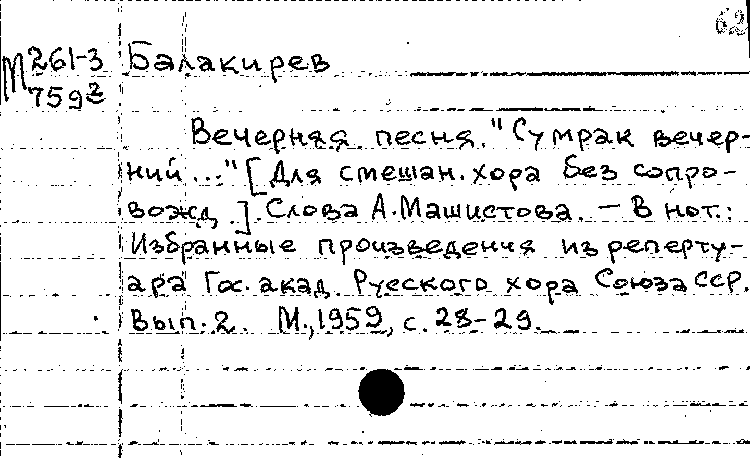 62
М 261-3 Балакирев
759²
Вечерняя песня. "Сумрак вечер-
ний..." [Для смешан. хора без сопро-
вожд.]. Слова А. Машистова. – В нот.:
Избранные произведения из реперту-
ара Гос. акад. Русского хора Союза ССР.
Вып. 2. М., 1959, с. 28-29.